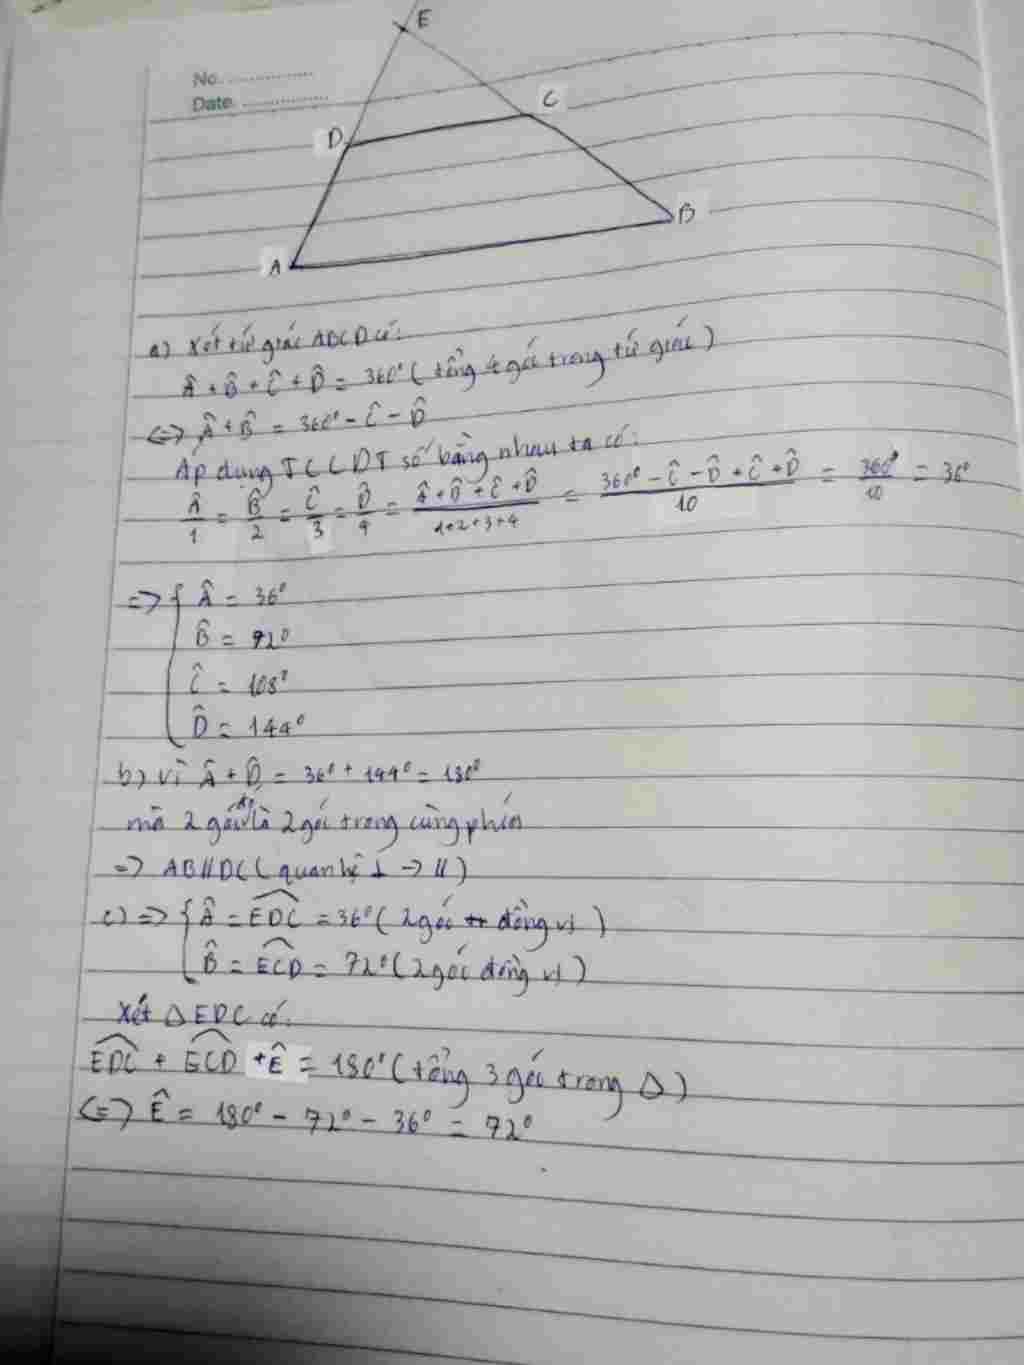 E
No.
Date
C
D
B
A
a) Xét tứ giác ABCD có:
Â + B̂ + Ĉ + D̂ = 360° ( tổng 4 góc trong tứ giác )
<=> Â + B̂ = 360° - Ĉ - D̂
Áp dụng TCCDT số bằng nhau ta có:
Â/1 = B̂/2 = Ĉ/3 = D̂/4 = (Â + B̂ + Ĉ + D̂)/(1+2+3+4) = (360° - Ĉ - D̂ + Ĉ + D̂)/10 = 360°/10 = 36°
=> { Â = 36°
B̂ = 72°
Ĉ = 108°
D̂ = 144°
b) Vì Â + D̂ = 36° + 144° = 180°
mà 2 góc đó là 2 góc trong cùng phía
=> AB // DC ( quan hệ ⊥ -> // )
c) => { Â = EDC = 36° ( 2 góc đồng vị )
B̂ = ECD = 72° ( 2 góc đồng vị )
Xét Δ EDC có:
EDC + ECD + Ê = 180° ( tổng 3 góc trong Δ )
<=> Ê = 180° - 72° - 36° = 72°